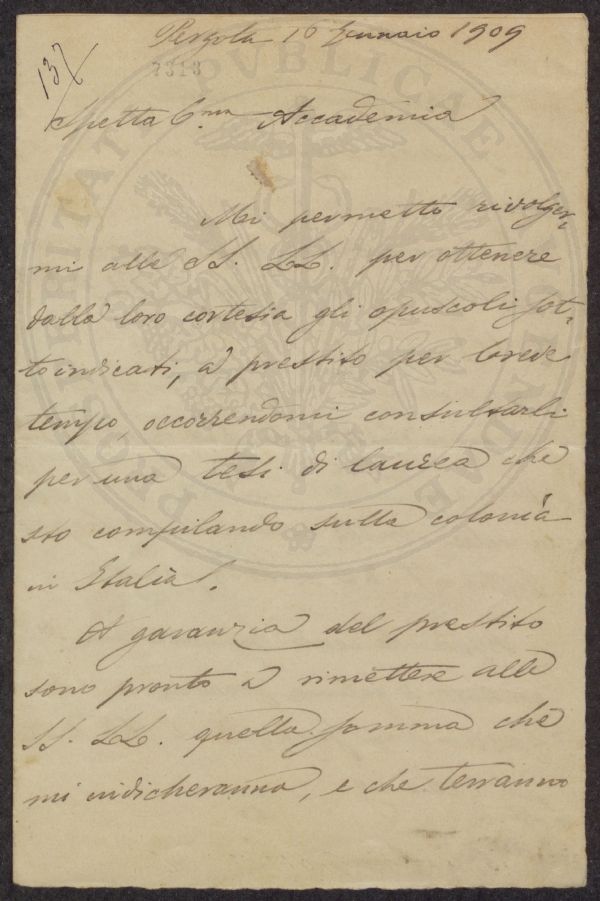 Pergola 16 Gennaio 1909
137
7313
Spettab.ma Accademia
Mi permetto rivolger-
mi alle SS. LL. per ottenere
dalla loro cortesia gli opuscoli sot-
toindicati, a prestito per breve
tempo, occorrendomi consultarli
per una tesi di laurea che
sto compilando sulla colonia
in Italia.
A garanzia del prestito
sono pronto a rimettere alle
SS. LL. quella somma che
mi indicheranno, e che terranno
PUBLICAE
PROSPERITATI